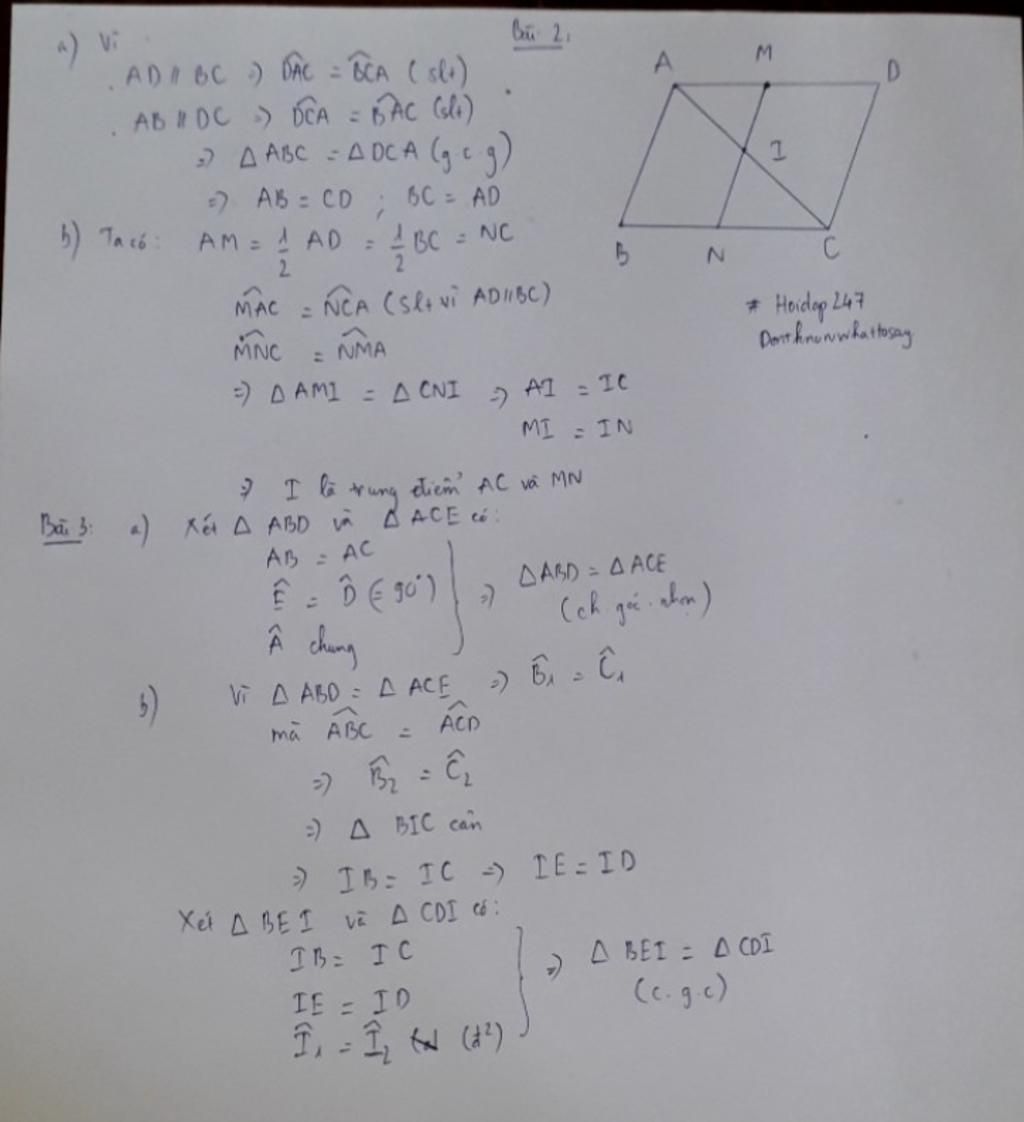 Bài 2:
a) Vì
AD // BC => D̂AC = B̂CA (slt)
AB // DC => D̂CA = B̂AC (slt)
=> Δ ABC = Δ DCA (g.c.g)
=> AB = CD ; BC = AD
b) Ta có: AM = 1/2 AD = 1/2 BC = NC
M̂AC = N̂CA (slt vì AD//BC)
M̂NC = N̂MA
=> Δ AMI = Δ CNI => AI = IC
MI = IN
=> I là trung điểm AC và MN
A M D
I
B N C
# Hoidap247
Dontknowwhattosay
Bài 3: a) Xét Δ ABD và Δ ACE có:
AB = AC
Ê = D̂ (= 90°)
Â chung
=> Δ ABD = Δ ACE
(ch. góc. nhọn)
b) Vì Δ ABD = Δ ACE => B̂₁ = Ĉ₁
mà ÂBC = ÂCD
=> B̂₂ = Ĉ₂
=> Δ BIC cân
=> IB = IC => IE = ID
Xét Δ BEI và Δ CDI có:
IB = IC
IE = ID
Î₁ = Î₂ (đ²)
=> Δ BEI = Δ CDI
(c.g.c)